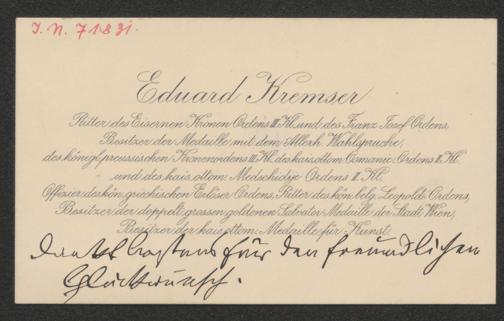 I. N. 71831.
Eduard Kremser
Ritter des Eisernen Kronen Ordens III. Kl. und des Franz Josef Ordens,
Besitzer der Medaille mit dem Allerh. Wahlspruche,
des königl. preussischen Kronenordens III. Kl. des kais. ottom. Osmanie-Ordens II. Kl.
und des kais. ottom. Medschidje Ordens II. Kl.
Offizier des kön. griechischen Erlöser Ordens, Ritter des kön. belg. Leopold-Ordens,
Besitzer der doppelt grossen goldenen Salvator Medaille der Stadt Wien,
Besitzer der kais. ottom. Medaille für Kunst
dankt bestens für den freundlichen
Glückwunsch.